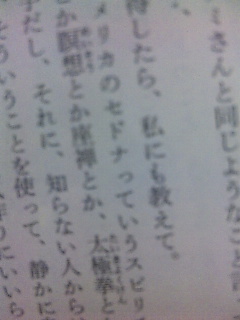 ミさんと同じようなこと言
得したら、私にも教えて。
メリカのセドナっていうスピリ
か瞑想とか座禅とか、太極拳と
だし、それに、知らない人から
そういうことを使って、静かに
にいいら